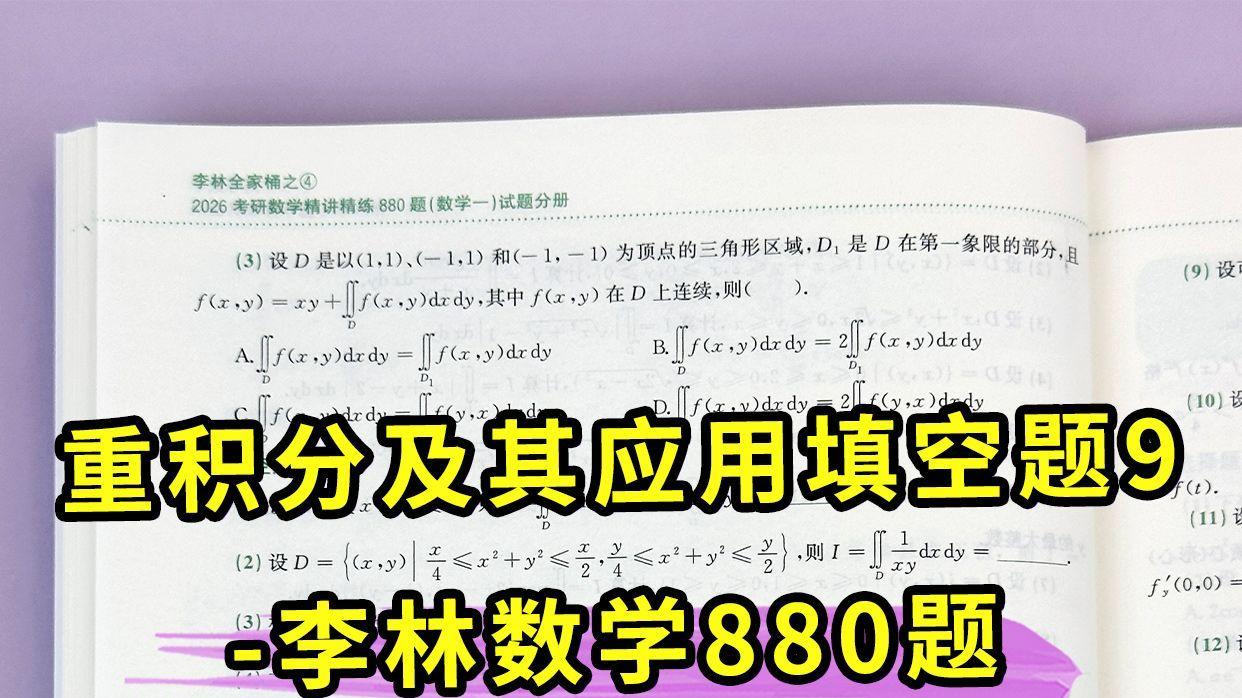 李林全家桶之④
2026 考研数学精讲精练 880 题(数学一)试题分册
(3) 设 D 是以(1,1)、(-1,1) 和(-1,-1) 为顶点的三角形区域, D₁ 是 D 在第一象限的部分,且
f(x,y) = xy + ∬_D f(x,y)dxdy,其中 f(x,y) 在 D 上连续,则(    ).
A. ∬_D f(x,y)dxdy = ∬_{D₁} f(x,y)dxdy    B. ∬_D f(x,y)dxdy = 2∬_{D₁} f(x,y)dxdy
C. ∬ f(x,y)dxdy = ∬ f(y,x)dxdy    D. ∬ f(x,y)dxdy = 2∬ f(y,x)dxdy
重积分及其应用填空题9
(2) 设 D = {(x,y) | x/4 ≤ x² + y² ≤ x/2, y/4 ≤ x² + y² ≤ y/2}, 则 I = ∬_D 1/(xy) dxdy = ______.
(3)
-李林数学880题
(9) 设
(10) 设
f(t).
(11) 设
f′_y(0,0) =
(12)